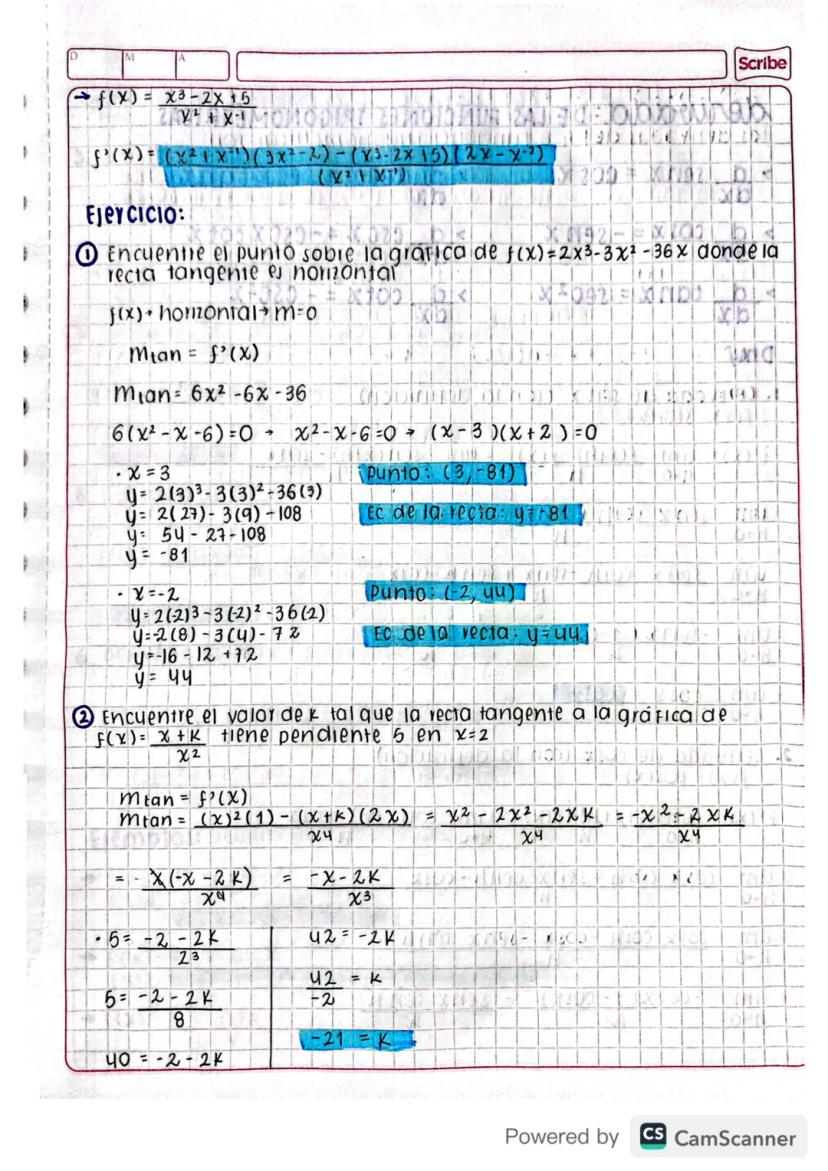 D M A Scribe
→ f(x) = x³ - 2x + 5 / x² + x⁻¹
f'(x) = (x² + x⁻¹)(3x² - 2) - (x³ - 2x + 5)(2x - x⁻²) / (x² + x⁻¹)
Ejercicio:
① Encuentre el punto sobre la gráfica de f(x) = 2x³ - 3x² - 36x donde la
recta tangente es horizontal
f(x) → horizontal → m = 0
mtan = f'(x)
mtan = 6x² - 6x - 36
6(x² - x - 6) = 0 → x² - x - 6 = 0 → (x - 3)(x + 2) = 0
· x = 3 Punto: (3, -81)
y = 2(3)³ - 3(3)² - 36(3)
y = 2(27) - 3(9) - 108 Ec de la recta: y = -81
y = 54 - 27 - 108
y = -81
· x = -2 Punto: (-2, 44)
y = 2(-2)³ - 3(-2)² - 36(2)
y = 2(8) - 3(4) - 72 Ec de la recta: y = 44
y = -16 - 12 + 72
y = 44
② Encuentre el valor de k tal que la recta tangente a la gráfica de
f(x) = x + k / x² tiene pendiente 5 en x = 2
mtan = f'(x)
mtan = (x)²(1) - (x + k)(2x) / x⁴ = x² - 2x² - 2xk / x⁴ = -x² - 2xk / x⁴
= - x(-x - 2k) / x⁴ = -x - 2k / x³
· 5 = -2 - 2k / 2³
5 = -2 - 2k / 8
40 = -2 - 2k
42 = -2k
42 / -2 = k
-21 = k
Powered by CS CamScanner